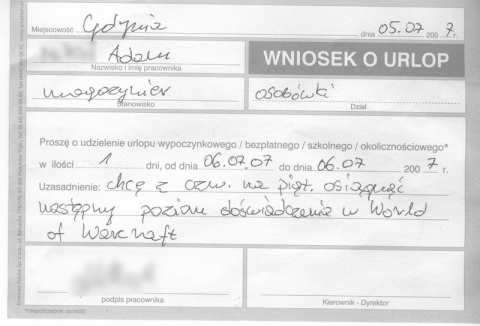 Gdynia dnia 05.07 2007 r.
Miejscowość
Adam
Nazwisko i imię pracownika
WNIOSEK O URLOP
magazynier
Stanowisko
osobówki
Dział
Proszę o udzielenie urlopu wypoczynkowego / bezpłatnego / szkolnego / okolicznościowego*
w ilości 1 dni, od dnia 06.07.07 do dnia 06.07 2007 r.
Uzasadnienie: chcę z czw. na piąt. osiągnąć
następny poziom doświadczenia w World
of Warcraft
podpis pracownika
Kierownik - Dyrektor
*niepotrzebne skreślić